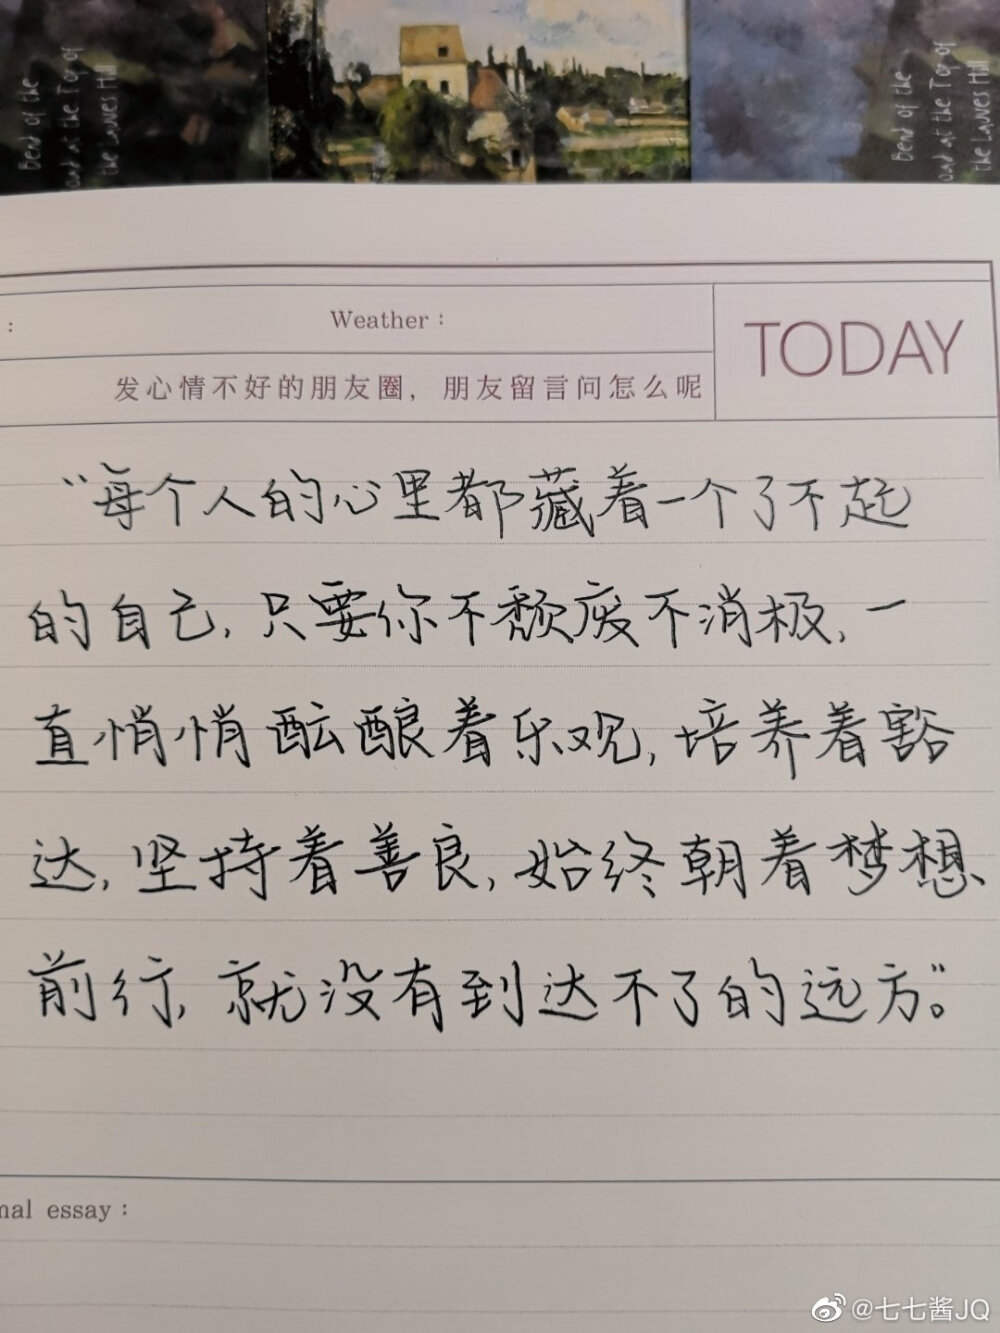 Bend of the
and at the Top of
the Lanes Hill
Bend of the
and at the Top of
the Lanes Hill
:
Weather :
TODAY
发心情不好的朋友圈，朋友留言问怎么呢
“每个人的心里都藏着一个了不起
的自己，只要你不颓废不消极，一
直悄悄酝酿着乐观，培养着豁
达，坚持着善良，始终朝着梦想
前行，就没有到达不了的远方”。
nal essay :
@七七酱JQ